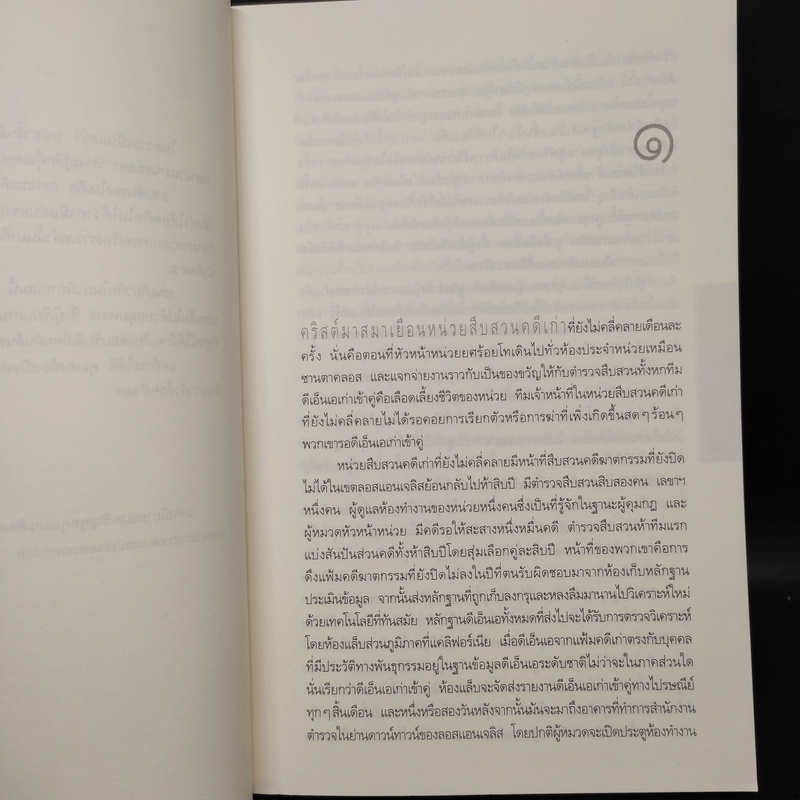 ๑
คริสต์มาสมาเยือนหน่วยสืบสวนคดีเก่าที่ยังไม่คลี่คลายเดือนละ
ครั้ง นั่นคือตอนที่หัวหน้าหน่วยยศร้อยโทเดินไปทั่วห้องประจำหน่วยเหมือน
ซานตาคลอส และแจกจ่ายงานราวกับเป็นของขวัญให้กับตำรวจสืบสวนทั้งหกทีม
ดีเอ็นเอเก่าเข้าคู่คือเลือดเลี้ยงชีวิตของหน่วย ทีมเจ้าหน้าที่ในหน่วยสืบสวนคดีเก่า
ที่ยังไม่คลี่คลายไม่ได้รอคอยการเรียกตัวหรือการฆ่าที่เพิ่งเกิดขึ้นสดๆร้อนๆ
พวกเขารอดีเอ็นเอเก่าเข้าคู่
หน่วยสืบสวนคดีเก่าที่ยังไม่คลี่คลายมีหน้าที่สืบสวนคดีฆาตกรรมที่ยังปิด
ไม่ได้ในเขตลอสแอนเจลิสย้อนกลับไปห้าสิบปี มีตำรวจสืบสวนสิบสองคน เลขาฯ
หนึ่งคน ผู้ดูแลห้องทำงานของหน่วยหนึ่งคนซึ่งเป็นที่รู้จักในฐานะผู้คุมกฎ และ
ผู้หมวดหัวหน้าหน่วย มีคดีรอให้สะสางหนึ่งหมื่นคดี ตำรวจสืบสวนห้าทีมแรก
แบ่งสันปันส่วนคดีทั้งห้าสิบปีโดยสุ่มเลือกคู่ละสิบปี หน้าที่ของพวกเขาคือการ
ดึงแฟ้มคดีฆาตกรรมที่ยังปิดไม่ลงในปีที่ตนรับผิดชอบมาจากห้องเก็บหลักฐาน
ประเมินข้อมูล จากนั้นส่งหลักฐานที่ถูกเก็บลงกรุและหลงลืมมานานไปวิเคราะห์ใหม่
ด้วยเทคโนโลยีที่ทันสมัย หลักฐานดีเอ็นเอทั้งหมดที่ส่งไปจะได้รับการตรวจวิเคราะห์
โดยห้องแล็บส่วนภูมิภาคที่แคลิฟอร์เนีย เมื่อดีเอ็นเอจากแฟ้มคดีเก่าตรงกับบุคคล
ที่มีประวัติทางพันธุกรรมอยู่ในฐานข้อมูลดีเอ็นเอระดับชาติไม่ว่าจะในภาคส่วนใด
นั่นเรียกว่าดีเอ็นเอเก่าเข้าคู่ ห้องแล็บจะจัดส่งรายงานดีเอ็นเอเก่าเข้าคู่ทางไปรษณีย์
ทุกๆสิ้นเดือน และหนึ่งหรือสองวันหลังจากนั้นมันจะมาถึงอาคารที่ทำการสำนักงาน
ตำรวจในย่านดาวน์ทาวน์ของลอสแอนเจลิส โดยปกติผู้หมวดจะเปิดประตูห้องทำงาน